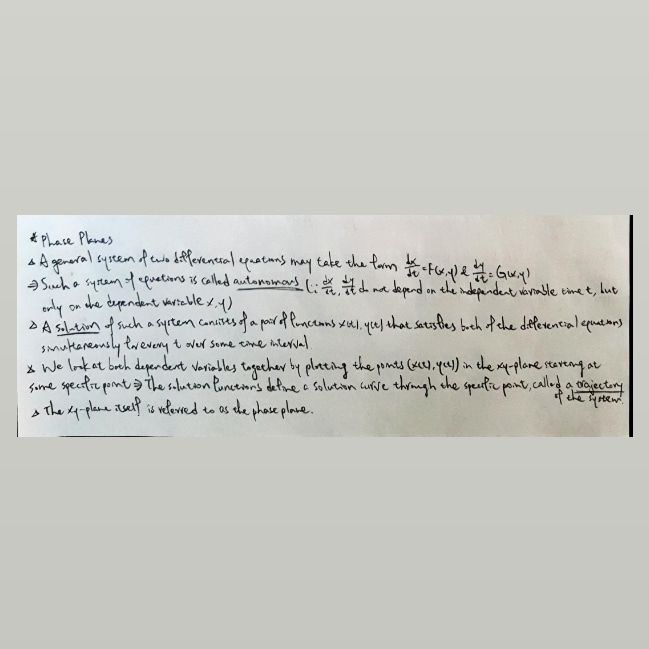 * Phase Planes
△ A general system of two differential equations may take the form dx/dt = F(x,y) & dy/dt = G(x,y)
⇒ Such a system of equations is called autonomous (∵ dx/dt, dy/dt do not depend on the independent variable time t, but
only on the dependent variable x, y)
△ A solution of such a system consists of a pair of functions x(t), y(t) that satisfies both of the differential equations
simultaneously for every t over some time interval
△ We look at both dependent variables together by plotting the points (x(t), y(t)) in the xy-plane starting at
some specific point ⇒ The solution functions define a solution curve through the specific point, called a trajectory
of the system.
△ The xy-plane itself is referred to as the phase plane.